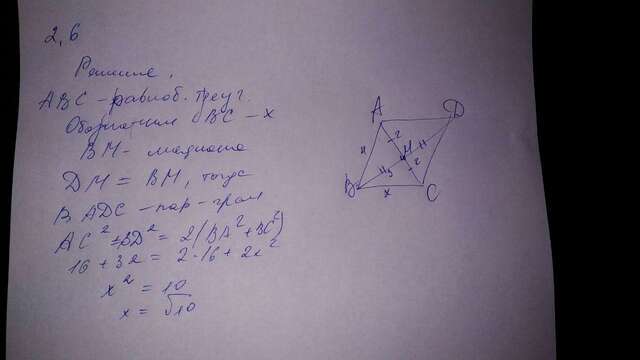 2,6
Решение.
ABC - равноб. треуг.
Обозначим BC - x
BM - медиана
DM = BM, тогда
BADC - пар-грам
AC² + BD² = 2(BA² + BC²)
16 + 3² = 2·16 + 2x²
x² = 10
x = √10
A D
4 2 M
3 2
B x C